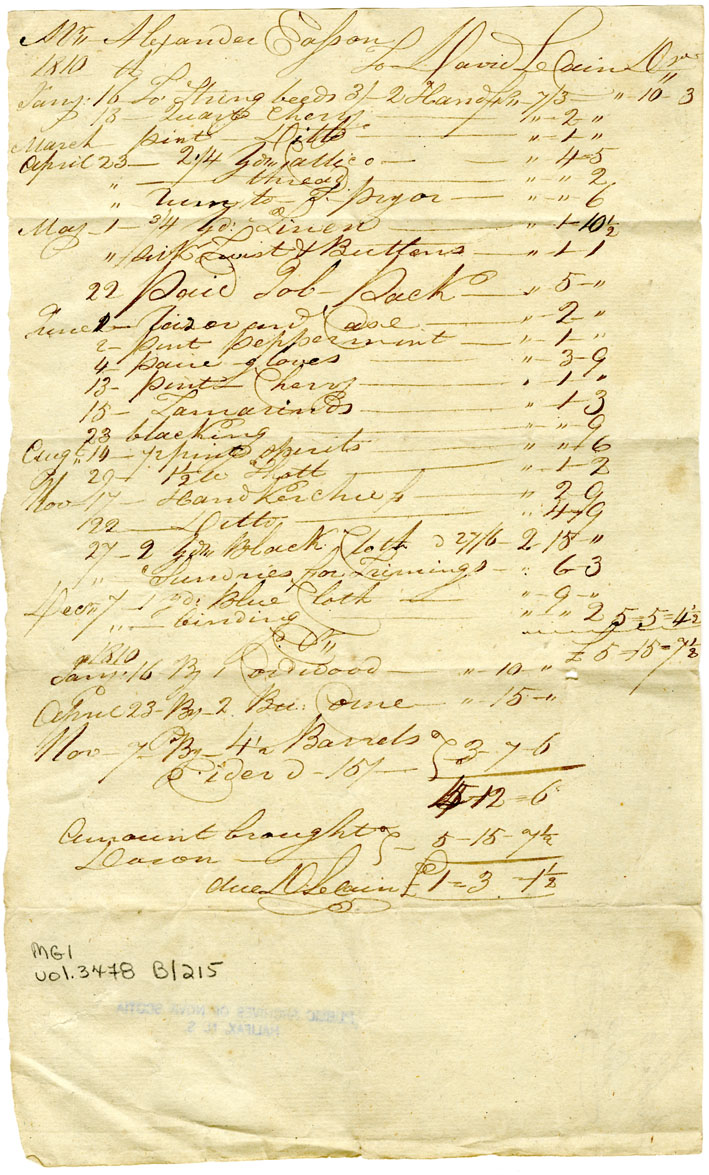 Mr. Alexander Easson
To David Lecain Dr
1810 th
Jany. 16 To String beeds 3/- 2 Handkfs 7/3 — " - 10 - 3
18 - Quart Cherry — " - 2 - "
March pint Ditto — " - 1 - "
April 23 - 2 1/4 yds Callico — " - 4 - 5
" thread — " - " - 2
" - to T. pryor — " - " - 6
May 1 - 3/4 yd: Linen — " - 1 - 10½
" silk Twist & Buttons — " - 1 - 1
22 paid Job - pack — " - 5 - "
June 1 - Razor and Case — " - 2 - "
2 - pint peppermint — " - 1 - "
4 - paire gloves — " - 3 - 9
13 - pint - Cherry — " - 1 - "
15 - Tamarinds — " - 1 - 3
23 blacking — " - " - 9
Aug" 14 - pint spirits — " - " - 6
29 - 1½ lb Shott — " - 1 - 2
Nov 17 - Handkerchief — " 2 - 9
22 - Ditto — " 4 - 9
27 - 2 yds Black Cloth @ 27/6 - 2 15 - "
" Sundries for Trimings - " 6 - 3
Decr 7 - 1 yd: Blue Cloth — " - 9 - "
" - binding — " " 2 5 = 5 = 4½
£ 5 - 15 - 7½
Cr
1810
Jany: 16 By 1 Cordwood — " - 10 - "
April 23 - By - 2 Bu: Corne — " - 15 - "
Nov - 7 - By - 4½ Barrels
Cider @ - 15/- } - 3 - 7 - 6
4 - 12 = 6
Amount brought
Down } - 5 - 15 - 7½
due D Lecain £ 1 = 3 - 1½
MG1
vol. 3478 B/215
PUBLIC ARCHIVES OF NOVA SCOTIA
HALIFAX, N. S.